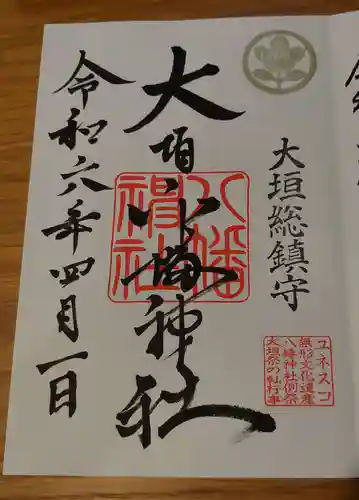 大垣総鎮守
大垣八幡神社
令和六年四月一日
八幡神社
ユネスコ
無形文化遺産
八幡神社例祭
大垣祭の軕行事